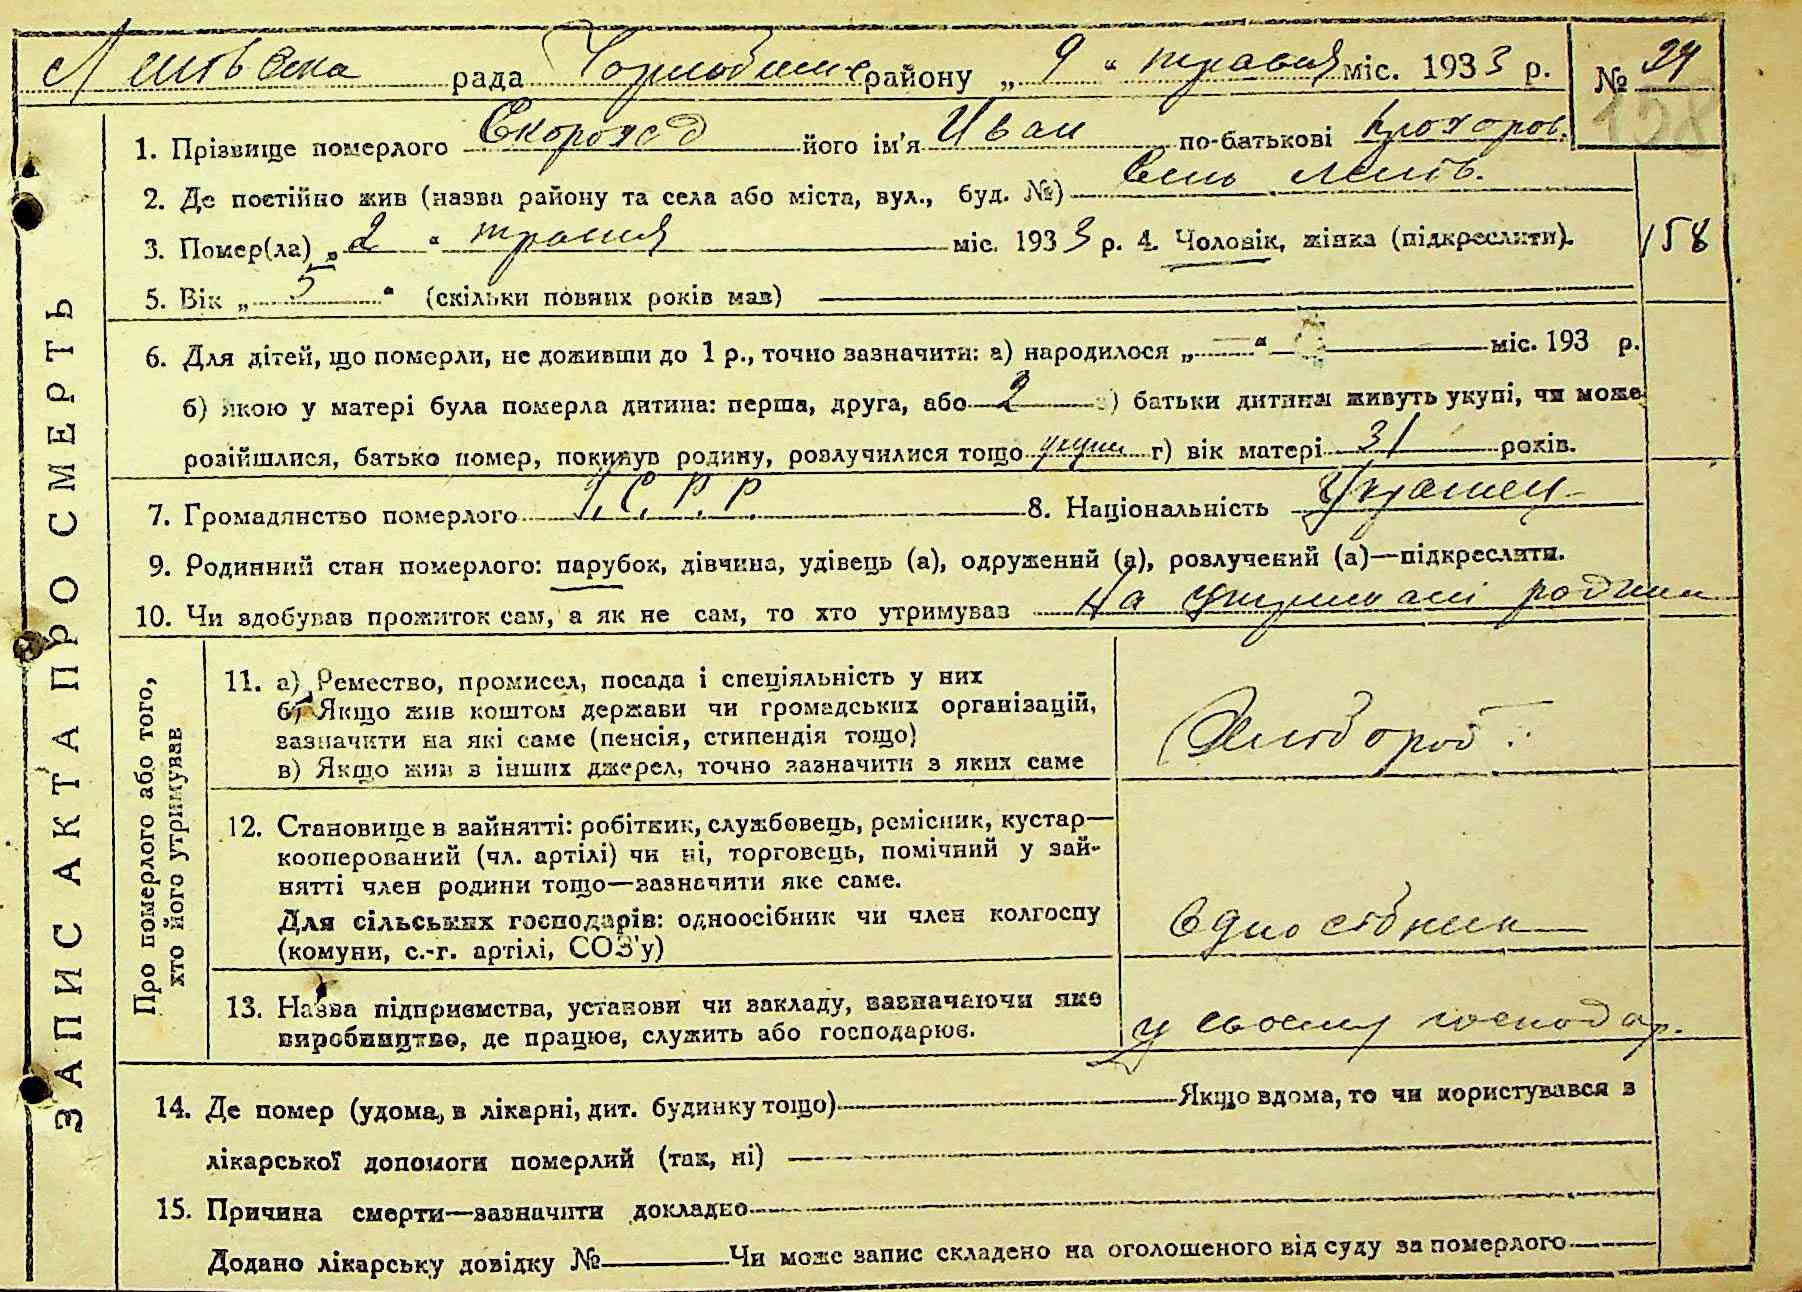 рада Чорнобаївс району „ 9 “ травня міс. 1933 р. № 29
158
1. Прізвище померлого Скороход його ім'я Иван по-батькові Прохоров.
2. Де постійно жив (назва району та села або міста, вул., буд. №)
3. Помер(ла) „ 2 “ травня міс. 1933 р. 4. Чоловік, жінка (підкреслити).
158
5. Вік „ 5 “ (скільки повних років мав)
6. Для дітей, що померли, не доживши до 1 р., точно зазначити: а) народилося „ “ міс. 193 р.
б) якою у матері була померла дитина: перша, друга, або 2 в) батьки дитини живуть укупі, чи може
розійшлися, батько помер, покинув родину, розлучилися тощо укупі г) вік матері 31 років.
7. Громадянство померлого У.С.Р.Р. 8. Національність Українец
9. Родинний стан померлого: парубок, дівчина, удівець (а), одружений (а), розлучений (а)—підкреслити.
10. Чи здобував прожиток сам, а як не сам, то хто утримував На утримані родини
ЗАПИС АКТА ПРО СМЕРТЬ
Про померлого або того,
хто його утримував
11. а) Ремество, промисел, посада і спеціяльність у них
б) Якщо жив коштом держави чи громадських організацій,
зазначити на які саме (пенсія, стипендія тощо)
в) Якщо жив з інших джерел, точно зазначити з яких саме
Хлібороб
12. Становище в зайнятті: робітник, службовець, ремісник, кустар—
кооперований (чл. артілі) чи ні, торговець, помічний у зай-
нятті член родини тощо—зазначити яке саме.
Для сільських господарів: одноосібник чи член колгоспу
(комуни, с.-г. артілі, СОЗ'у)
Одноосібник
13. Назва підприємства, установи чи закладу, зазначаючи яке
виробництво, де працює, служить або господарює.
у своему господар.
14. Де помер (удома, в лікарні, дит. будинку тощо) Якщо вдома, то чи користувався з
лікарської допомоги померлий (так, ні)
15. Причина смерти—зазначити докладно
Додано лікарську довідку № Чи може запис складено на оголошеного від суду за померлого